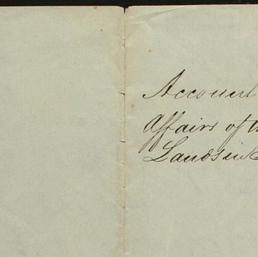 Account
Affairs of th
Lands in